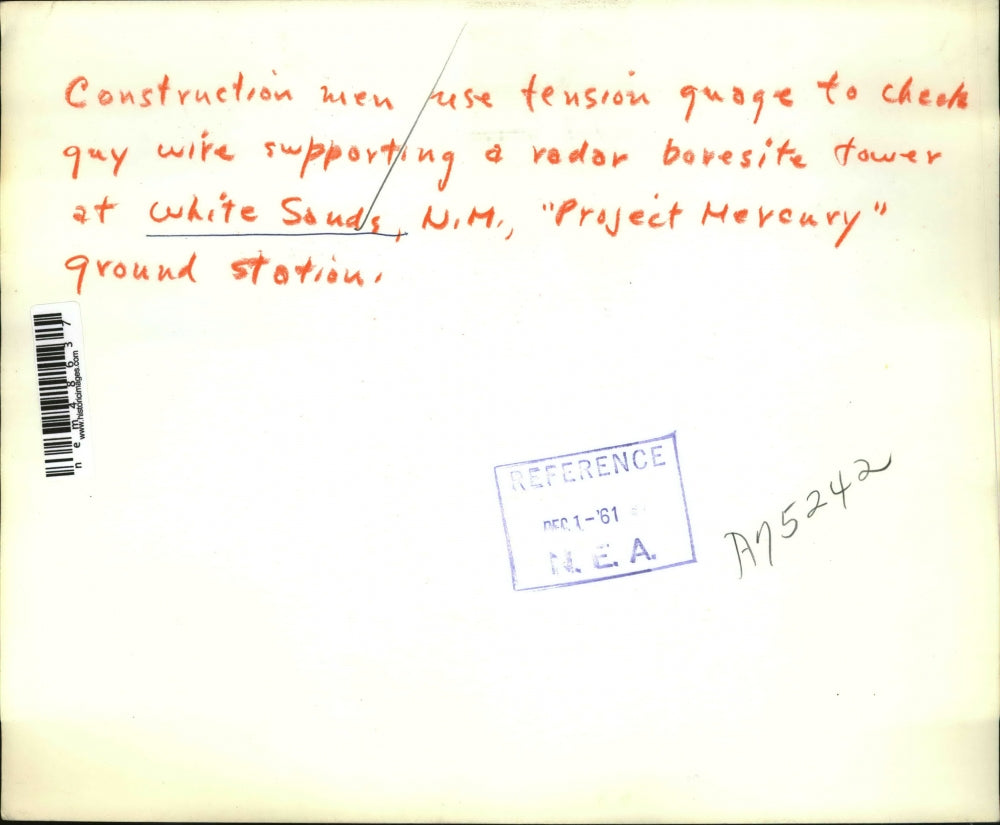 Construction men use tension guage to check
guy wire supporting a radar boresite tower
at White Sands, N.M., "Project Mercury"
ground station.
nem48637
www.historicimages.com
REFERENCE
DEC 1-'61
N.E.A.
A75242